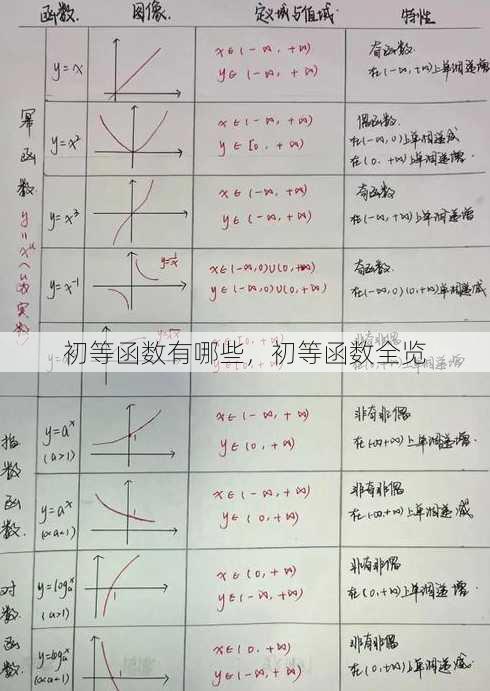 函数. 图像. 定义域与值域. 特性
幂函数 y=x^u (u为实数)
y=x
x∈(-∞, +∞)
y∈(-∞, +∞)
奇函数
在(-∞, +∞)上单调递增
y=x²
x∈(-∞, +∞)
y∈[0, +∞)
偶函数.
在(-∞, 0)上单调递减
在(0, +∞)上单调递增.
y=x³
x∈(-∞, +∞)
y∈(-∞, +∞)
奇函数
在(-∞, +∞)上单调递增
y=x⁻¹
x∈(-∞,0)∪(0,+∞)
y∈(-∞,0)∪(0,+∞)
奇函数.
在(-∞,0)(0,+∞)单调递减
初等函数有哪些，初等函数全览
指数函数.
y=aˣ
(a>1)
1
x∈(-∞, +∞)
y∈(0, +∞)
非奇非偶
在(-∞,+∞)上单调递增.
y=aˣ
(0<a<1)
1
x∈(-∞, +∞)
y∈(0, +∞)
非奇非偶
在(-∞,+∞)上单调递减
对数函数.
y=logₐx
(a>1)
1
x∈(0, +∞)
y∈(-∞, +∞)
非奇非偶
在(0,+∞)上单调递增.
y=logₐx
(0<a<1)
1
x∈(0, +∞)
y∈(-∞, +∞)
非奇非偶
在(0,+∞)上单调递减.